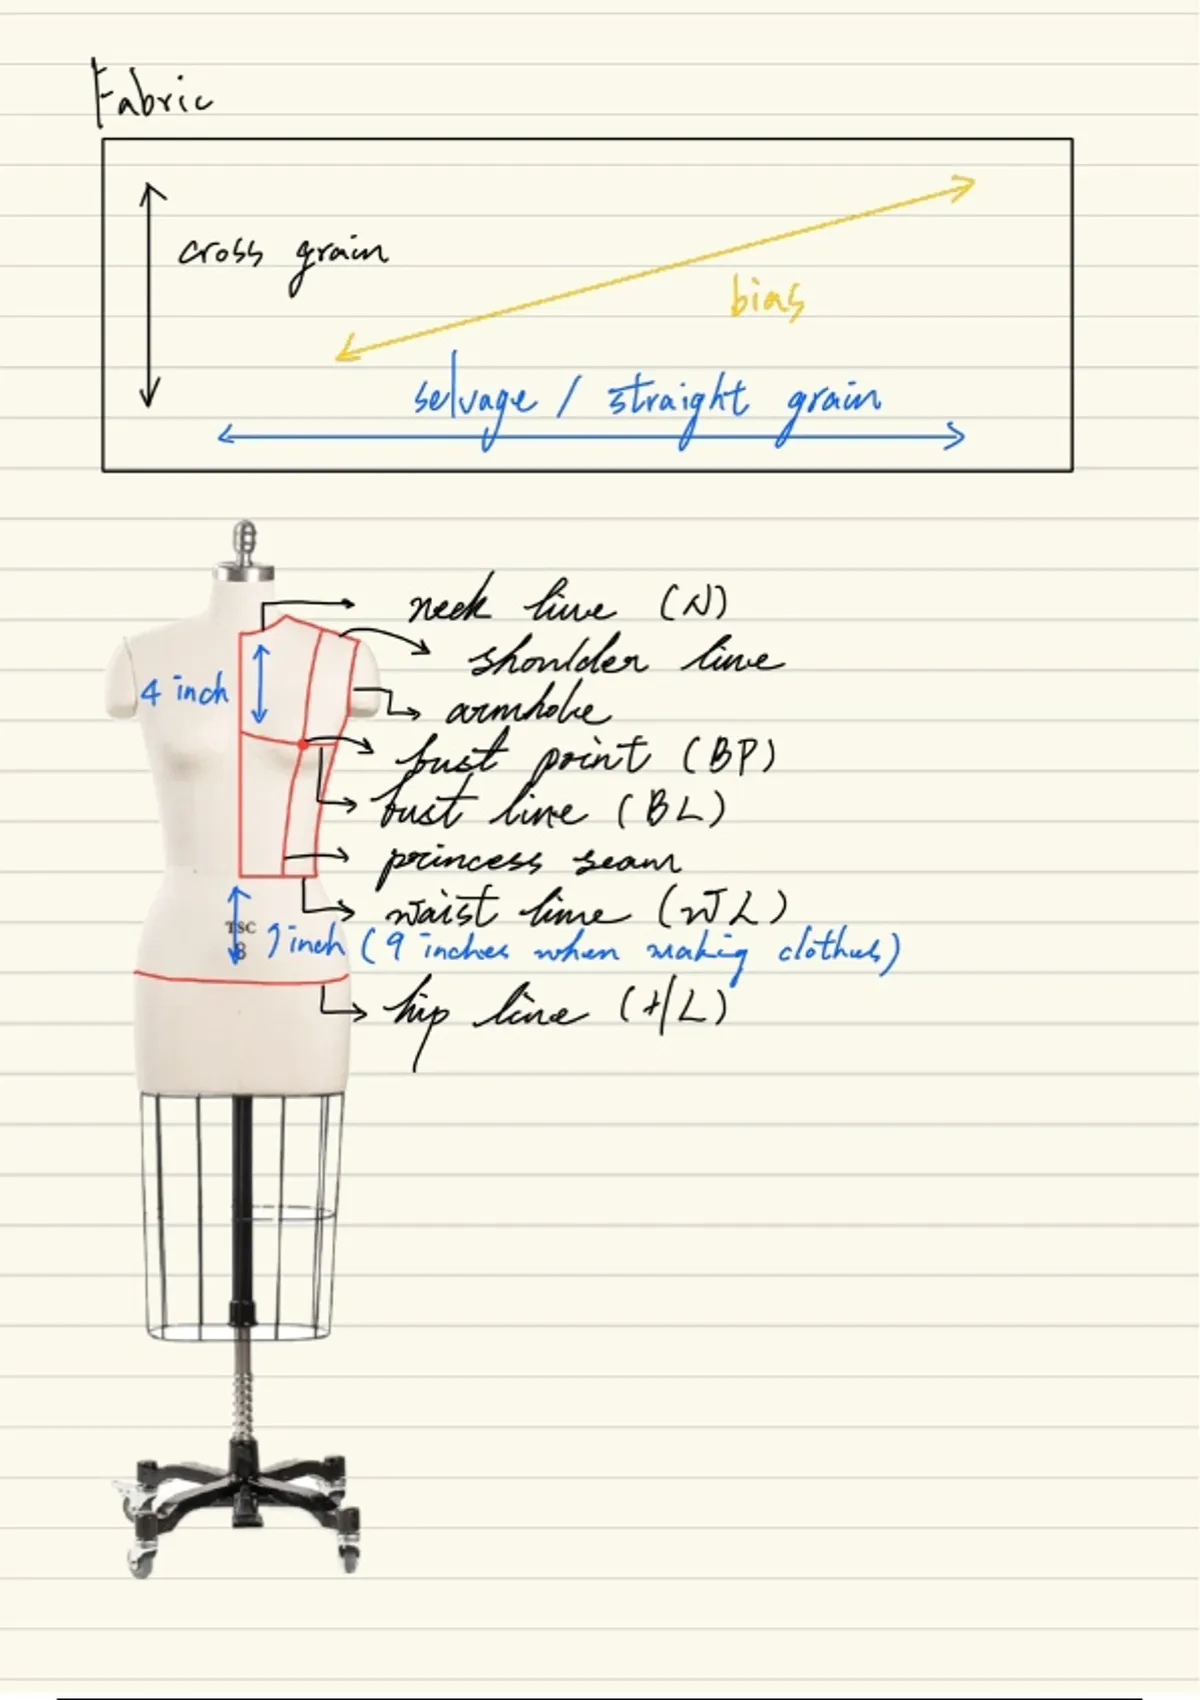 Fabric
cross grain
bias
selvage / straight grain
neck line (N)
shoulder line
4 inch
armhole
bust point (BP)
bust line (BL)
princess seam
waist line (WL)
TSC
8
inch (9 inches when making clothes)
hip line (HL)